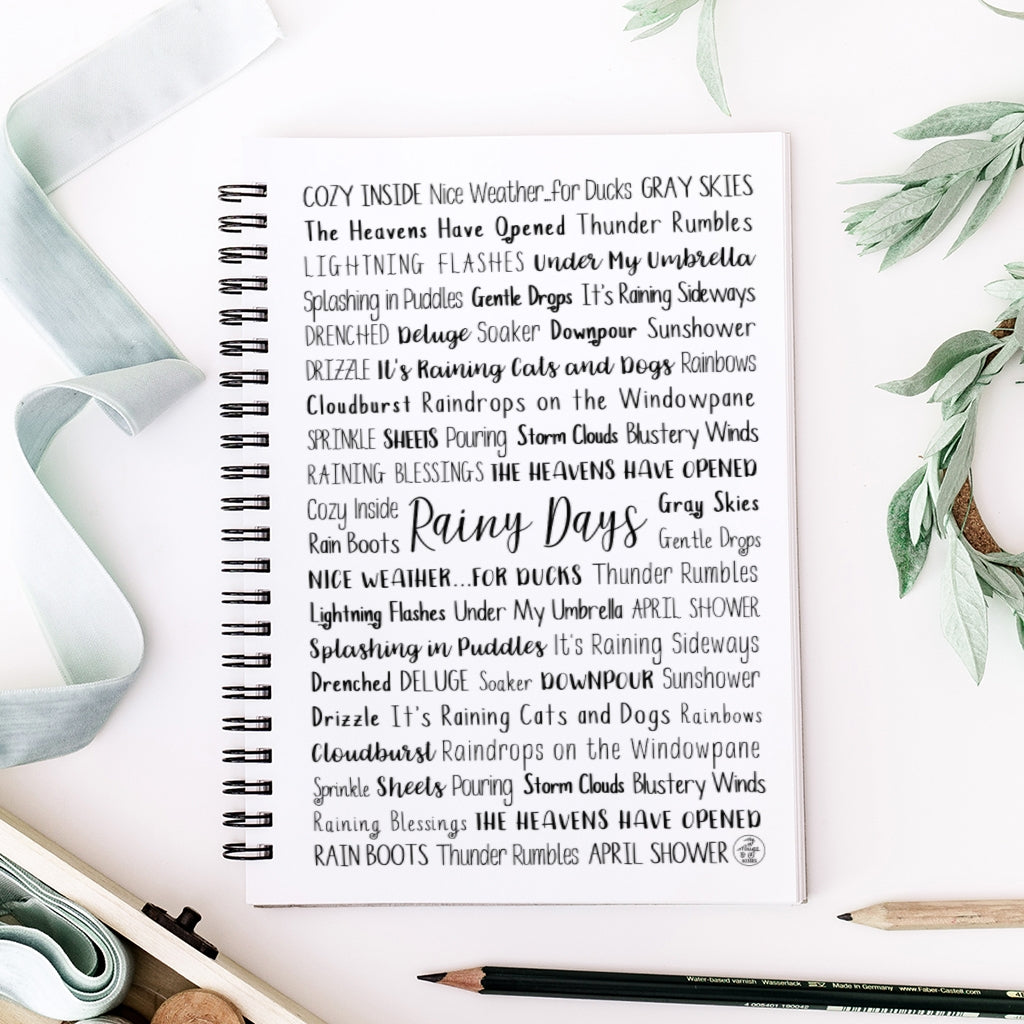 COZY INSIDE Nice Weather...for Ducks GRAY SKIES
The Heavens Have Opened Thunder Rumbles
LIGHTNING FLASHES Under My Umbrella
Splashing in Puddles Gentle Drops It's Raining Sideways
DRENCHED Deluge Soaker Downpour Sunshower
DRIZZLE It's Raining Cats and Dogs Rainbows
Cloudburst Raindrops on the Windowpane
SPRINKLE SHEETS Pouring Storm Clouds Blustery Winds
RAINING BLESSINGS THE HEAVENS HAVE OPENED
Cozy Inside
Rain Boots
Rainy Days
Gray Skies
Gentle Drops
NICE WEATHER...FOR DUCKS Thunder Rumbles
Lightning Flashes Under My Umbrella APRIL SHOWER
Splashing in Puddles It's Raining Sideways
Drenched DELUGE Soaker DOWNPOUR Sunshower
Drizzle It's Raining Cats and Dogs Rainbows
Cloudburst Raindrops on the Windowpane
Sprinkle Sheets Pouring Storm Clouds Blustery Winds
Raining Blessings THE HEAVENS HAVE OPENED
RAIN BOOTS Thunder Rumbles APRIL SHOWER
Water-based varnish Wasserlack Made in Germany www.Faber-Castell.com
4 005401 190042